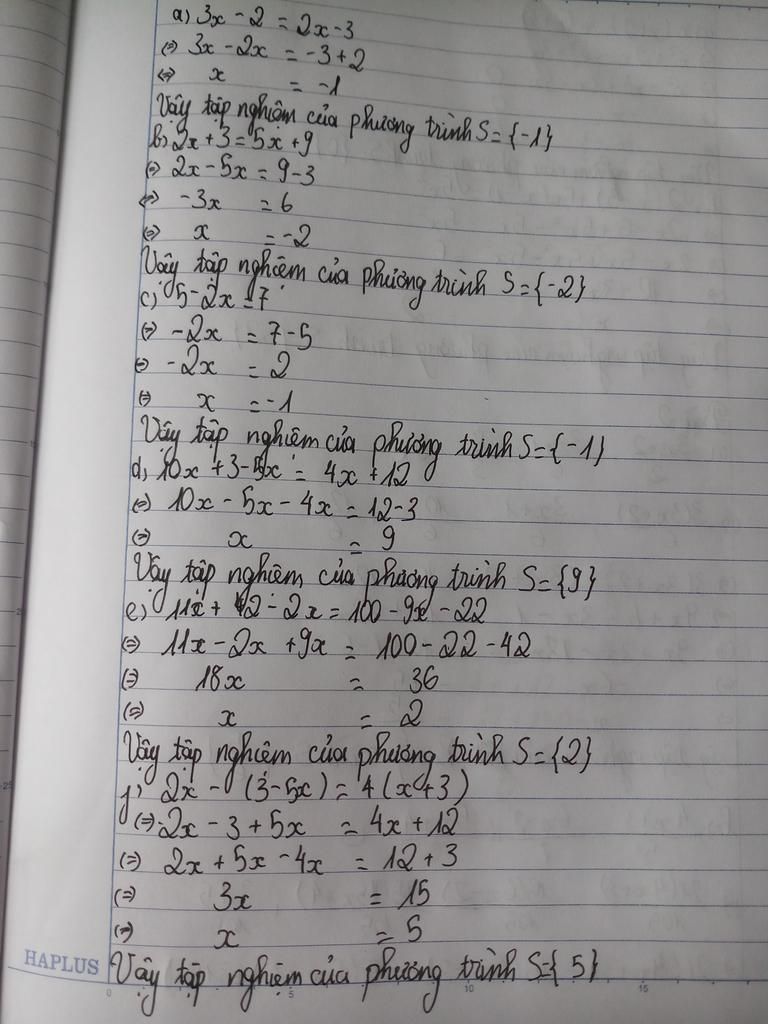 a) 3x - 2 = 2x - 3
(=) 3x - 2x = -3 + 2
(=) x = -1
Vậy tập nghiệm của phương trình S = {-1}
b) 2x + 3 = 5x + 9
(=) 2x - 5x = 9 - 3
(=) -3x = 6
(=) x = -2
Vậy tập nghiệm của phương trình S = {-2}
c) 5 - 2x = 7
(=) -2x = 7 - 5
(=) -2x = 2
(=) x = -1
Vậy tập nghiệm của phương trình S = {-1}
d) 10x + 3 - 5x = 4x + 12
(=) 10x - 5x - 4x = 12 - 3
(=) x = 9
Vậy tập nghiệm của phương trình S = {9}
e) 11x + 42 - 2x = 100 - 9x - 22
(=) 11x - 2x + 9x = 100 - 22 - 42
(=) 18x = 36
(=) x = 2
Vậy tập nghiệm của phương trình S = {2}
f) 2x - (3 - 5x) = 4(x + 3)
(=) 2x - 3 + 5x = 4x + 12
(=) 2x + 5x - 4x = 12 + 3
(=) 3x = 15
(=) x = 5
HAPLUS Vậy tập nghiệm của phương trình S = {5}
0 5 10 15